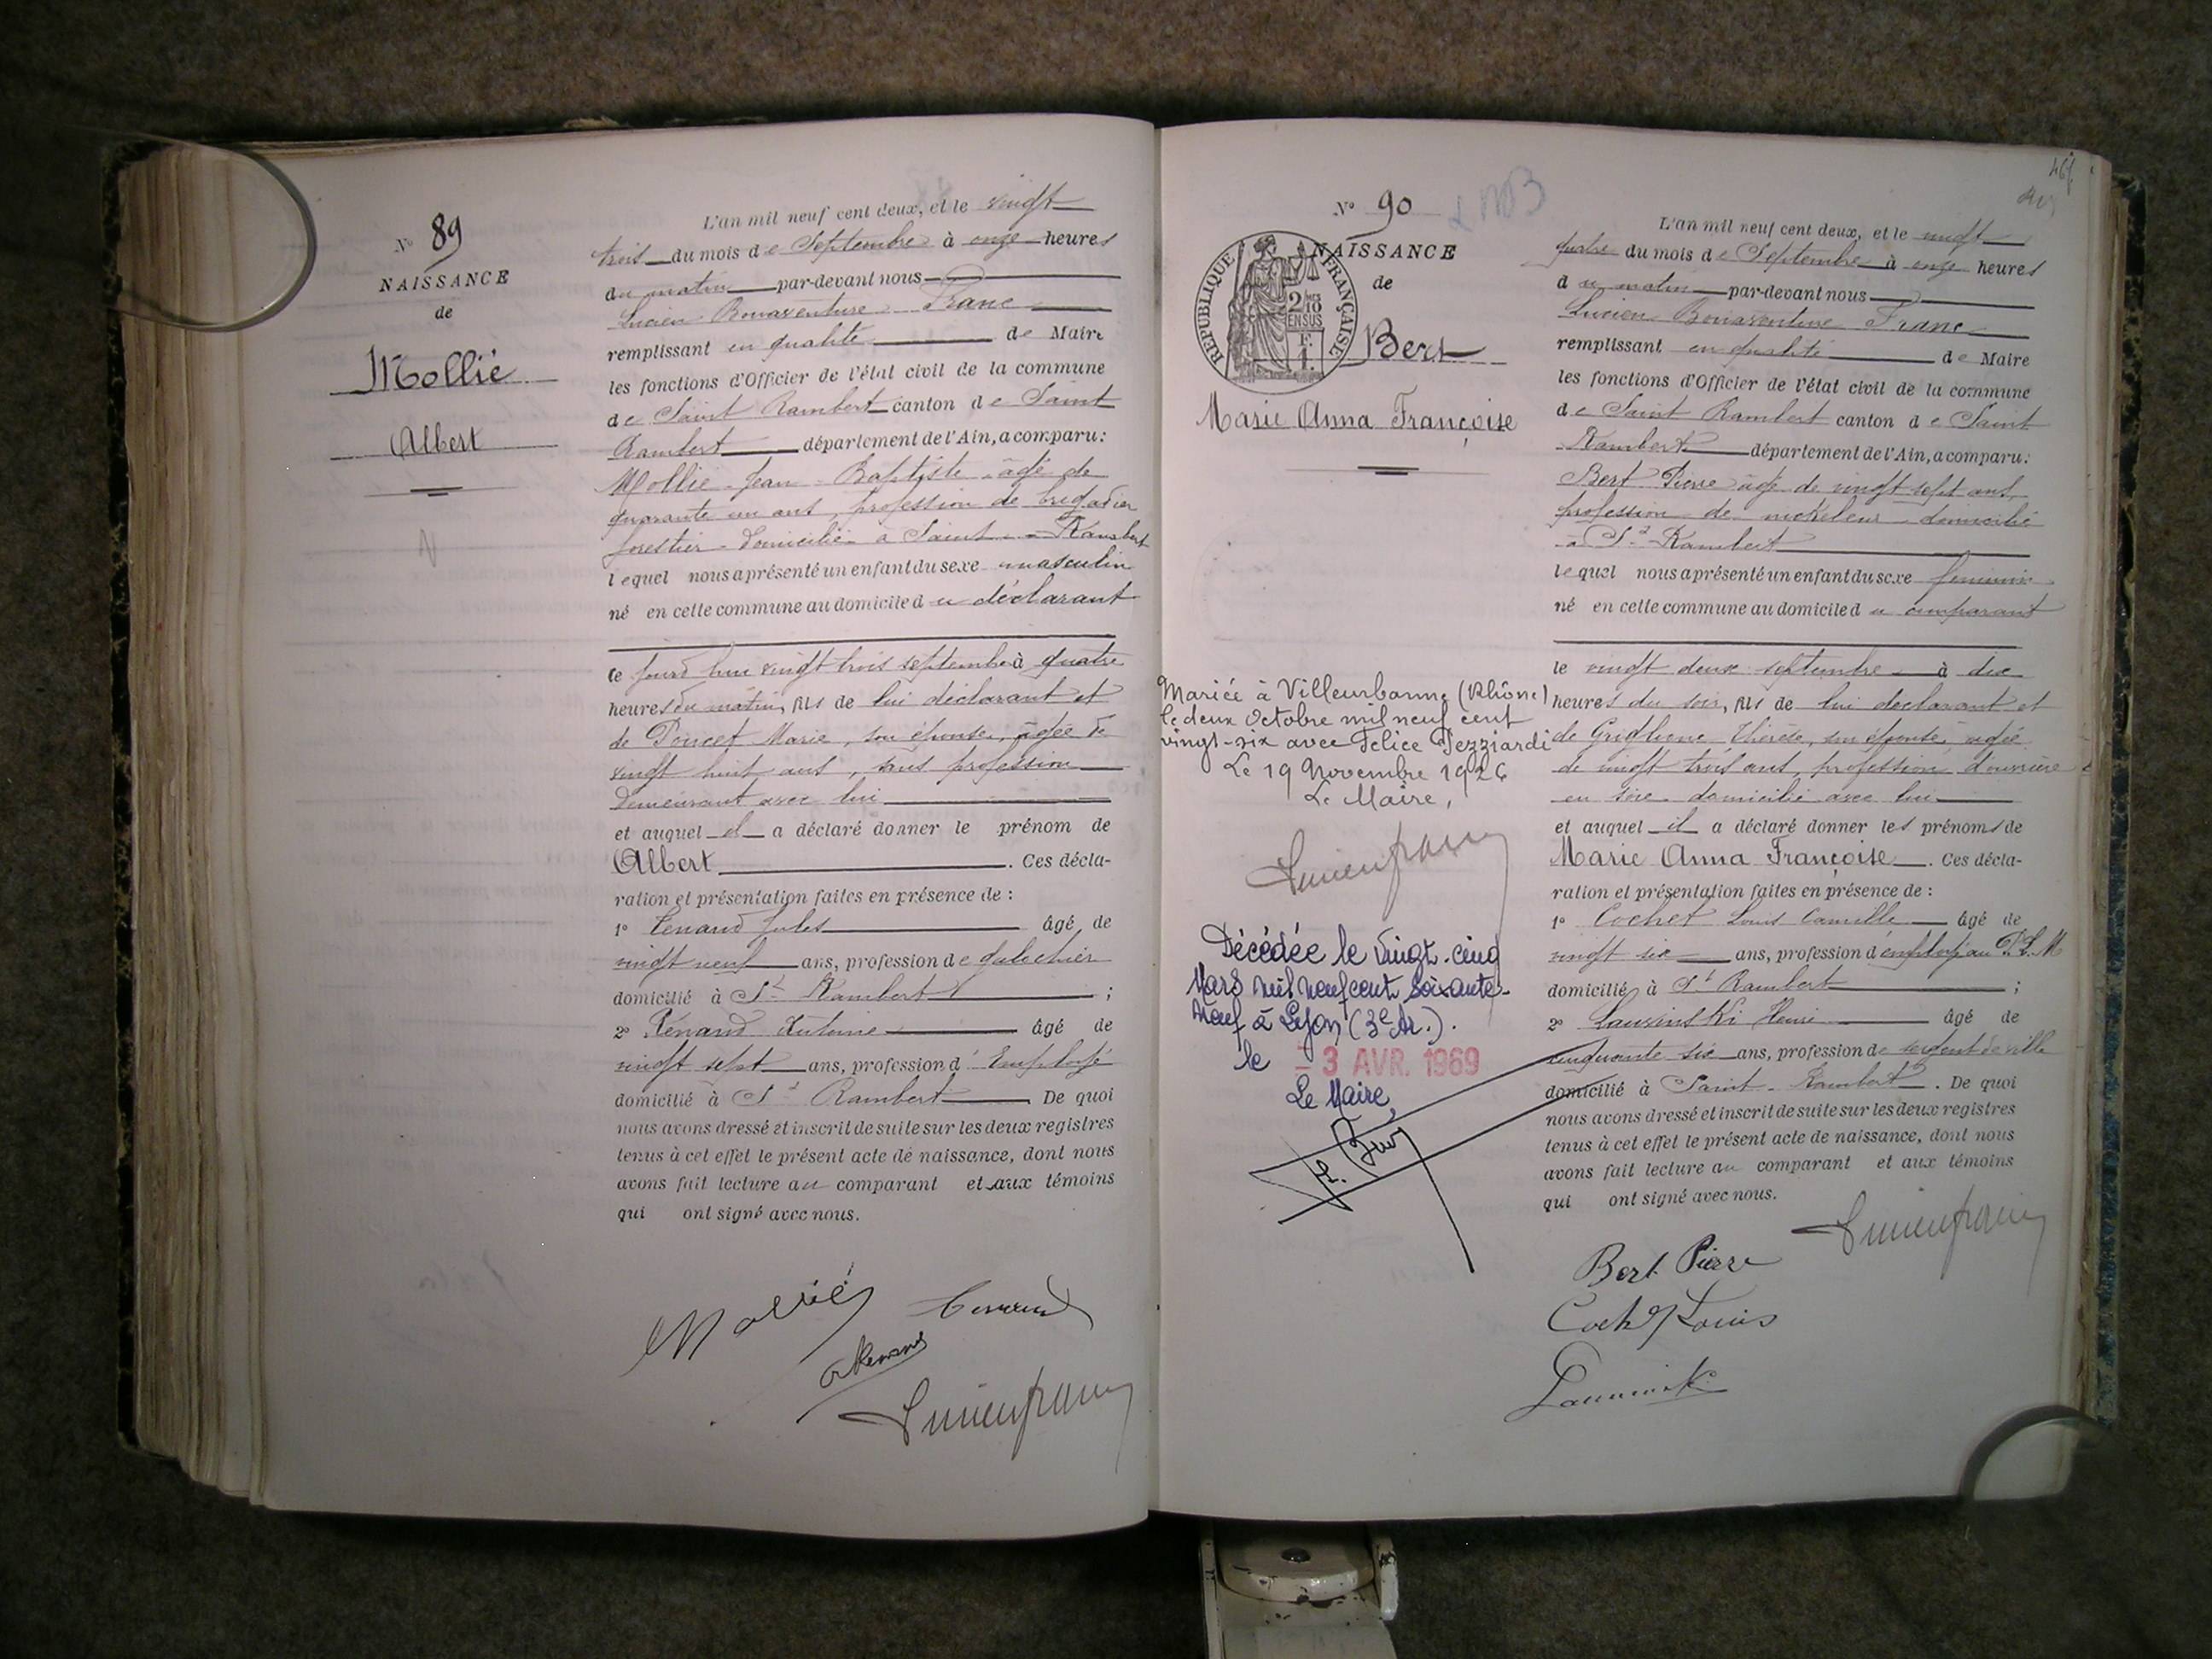 N° 89
NAISSANCE
de
Mollié
Albert
L'an mil neuf cent deux, et le vingt
trois du mois de Septembre à onze heures
du matin par-devant nous
Lucien Bonaventure Franc
remplissant en qualité de Maire
les fonctions d'Officier de l'état civil de la commune
de Saint Rambert canton de Saint
Rambert département de l'Ain, a comparu:
Mollié Jean Baptiste âgé de
quarante un ans, profession de brigadier
forestier domicilié à Saint-Rambert
lequel nous a présenté un enfant du sexe masculin
né en cette commune au domicile du déclarant
ce jourd'hui vingt trois septembre à quatre
heures du matin, fils de lui déclarant et
de Poncet Marie, son épouse, âgée de
vingt huit ans, sans profession
demeurant avec lui
et auquel il a déclaré donner le prénom de
Albert. Ces décla-
ration et présentation faites en présence de :
1° Jules âgé de
vingt neuf ans, profession de galochier
domicilié à St Rambert ;
2° Antoine âgé de
vingt sept ans, profession d'Employé
domicilié à St Rambert De quoi
nous avons dressé et inscrit de suite sur les deux registres
tenus à cet effet le présent acte de naissance, dont nous
avons fait lecture au comparant et aux témoins
qui ont signé avec nous.
Mollié
Lucien Franc
N° 90
NAISSANCE
de
RÉPUBLIQUE FRANÇAISE
2/10 MES
EN SUS
F.
1.
Bert
Marie Anna Françoise
Mariée à Villeurbanne (Rhône)
le deux Octobre mil neuf cent
vingt-six avec Felice Pezziardi
Le 19 Novembre 1926
Le Maire,
Lucien Franc
Décédée le vingt-cinq
Mars mil neuf cent soixante-
neuf à Lyon (3e Ar.).
le - 3 AVR. 1969
Le Maire,
L'an mil neuf cent deux, et le vingt
quatre du mois de Septembre à onze heures
du matin par-devant nous
Lucien Bonaventure Franc
remplissant en qualité de Maire
les fonctions d'Officier de l'état civil de la commune
de Saint Rambert canton de Saint
Rambert département de l'Ain, a comparu:
Bert Pierre âgé de vingt sept ans,
profession de nickeleur domicilié
à St Rambert
lequel nous a présenté un enfant du sexe féminin
né en cette commune au domicile du comparant
le vingt deux septembre à dix
heures du soir, fils de lui déclarant et
de Thérèse, son épouse, âgée
de vingt trois ans, profession d'ouvrière
en soie domicilié avec lui
et auquel il a déclaré donner les prénoms de
Marie Anna Françoise. Ces décla-
ration et présentation faites en présence de :
1° Cochet Louis Camille âgé de
vingt six ans, profession d'employé au P.L.M
domicilié à St Rambert ;
2° Henri âgé de
cinquante six ans, profession de sergent de ville
domicilié à Saint-Rambert. De quoi
nous avons dressé et inscrit de suite sur les deux registres
tenus à cet effet le présent acte de naissance, dont nous
avons fait lecture au comparant et aux témoins
qui ont signé avec nous.
Lucien Franc
Bert Pierre
Cochet Louis